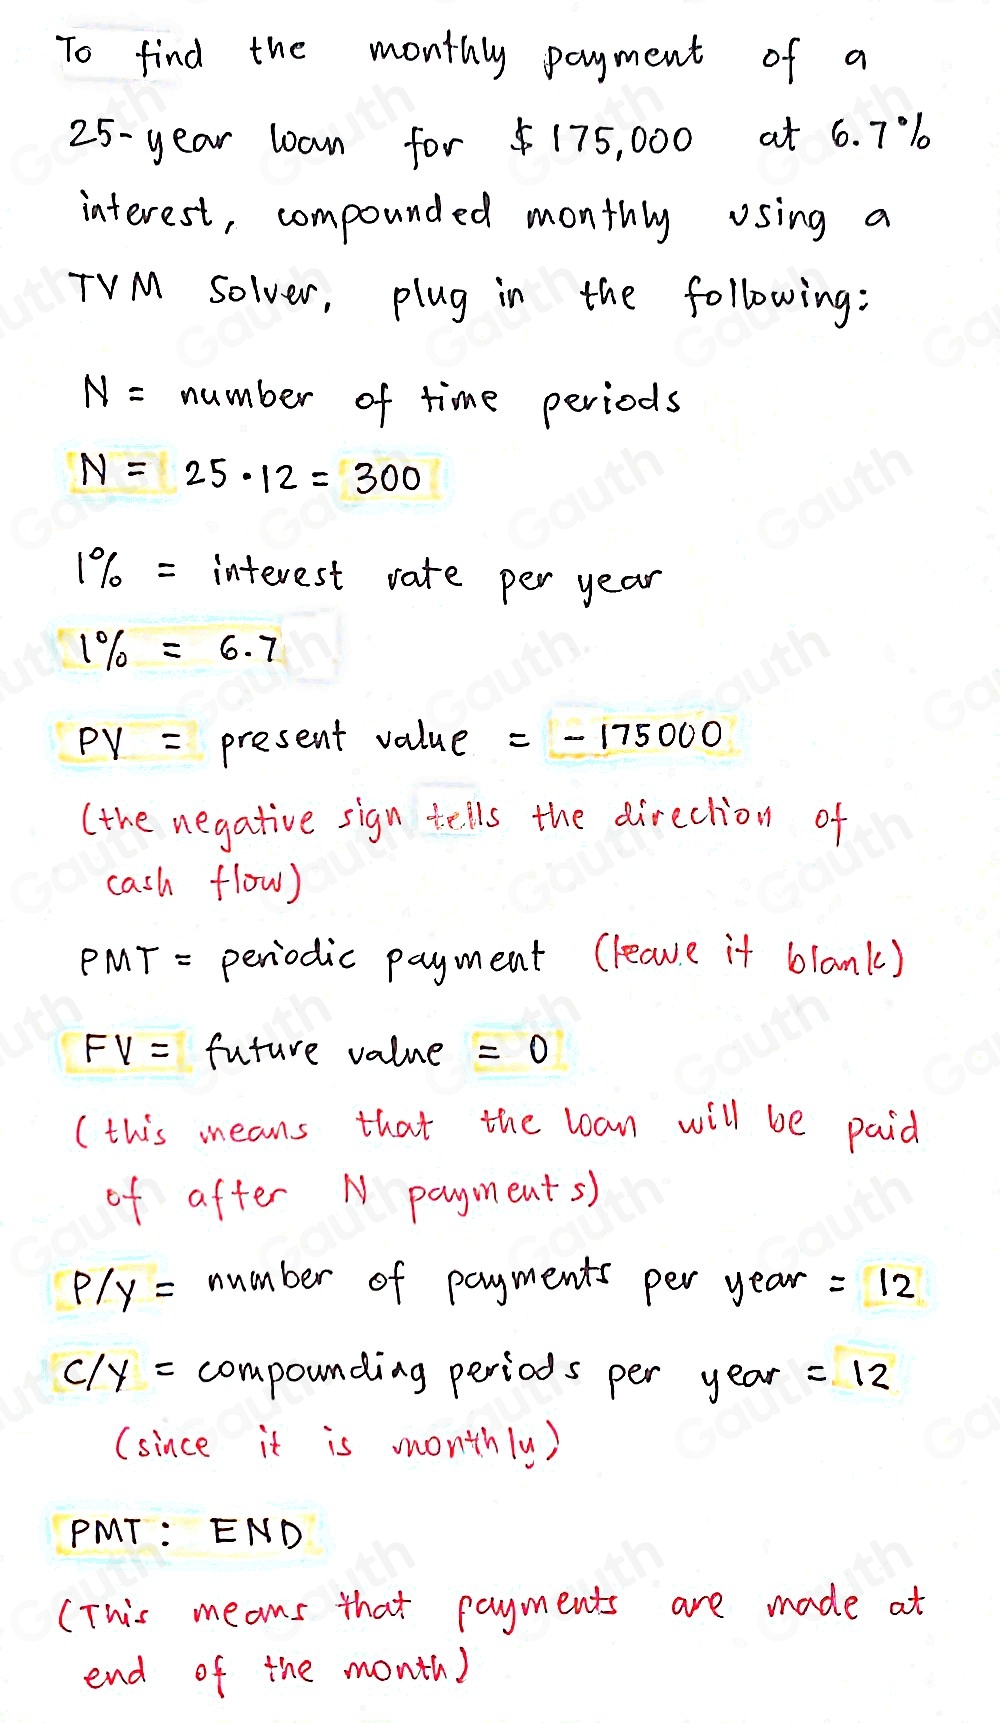 To find the monthly payment of a
25-year loan for $175,000 at 6.7%
interest, compounded monthly using a
TVM Solver, plug in the following:
N = number of time periods
N = 25 · 12 = 300
1% = interest rate per year
1% = 6.7
PV = present value = -175000
(the negative sign tells the direction of
cash flow)
PMT = periodic payment (leave it blank)
FV = future value = 0
(this means that the loan will be paid
of after N payments)
P/y = number of payments per year = 12
C/Y = compounding periods per year = 12
(since it is monthly)
PMT: END
(This means that payments are made at
end of the month)